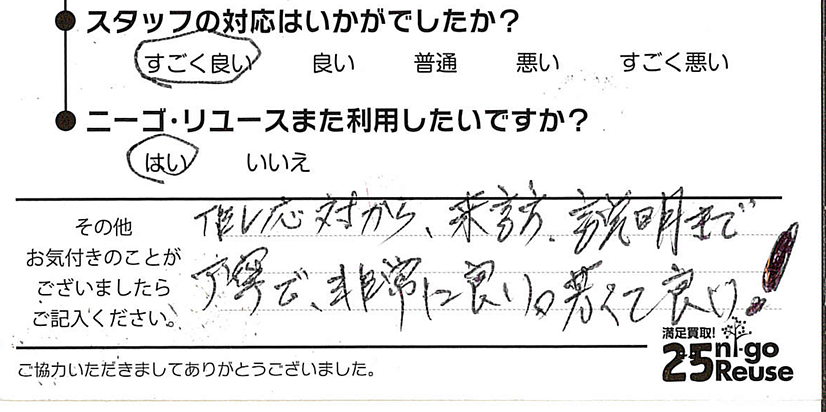 スタッフの対応はいかがでしたか？
すごく良い 良い 普通 悪い すごく悪い
ニーゴ・リユースまた利用したいですか？
はい いいえ
その他
お気付きのことが
ございましたら
ご記入ください。
応対から、来訪、説明まで
丁寧で、非常に良い。若くて良い!
満足買取!
25 ni-go
Reuse
ご協力いただきましてありがとうございました。